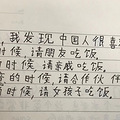 ，我发现中国人很喜
时候，请朋友吃饭。
时候，请亲戚吃饭。
的时候，请合作伙伴
时候，请女孩子吃饭。